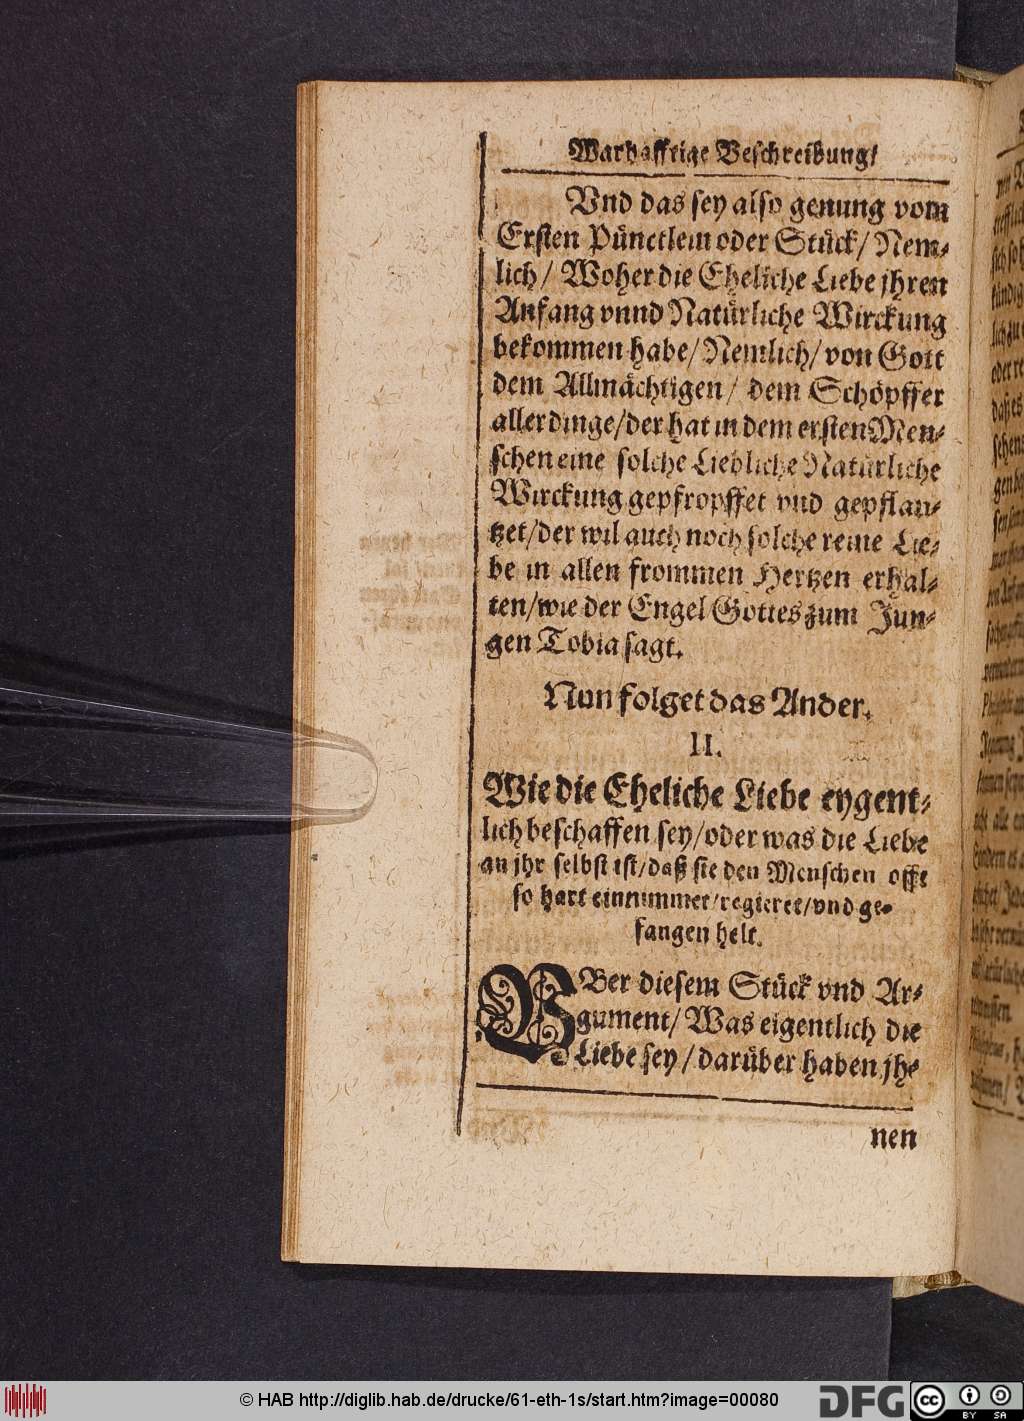 Warhafftige Beschreibung/
Vnd das sey also genung vom
Ersten Pünctlein oder Stück/ Nem-
lich/ Woher die Eheliche Liebe jhren
Anfang vnnd Natürliche Wirckung
bekommen habe/ Nemlich/ von Gott
dem Allmächtigen/ dem Schöpffer
aller dinge/ der hat in dem ersten Men-
schen eine solche Liebliche Natürliche
Wirckung gepfropffet vnd gepflan-
tzet/ der wil auch noch solche reine Lie-
be in allen frommen Hertzen erhal-
ten/ wie der Engel Gottes zum Jun-
gen Tobia sagt.
Nun folget das Ander.
II.
Wie die Eheliche Liebe eygent-
lich beschaffen sey/ oder was die Liebe
an jhr selbst ist/ daß sie den Menschen offt
so hart einnimmet/ regieret/ vnd ge-
fangen helt.
VBer diesem Stück vnd Ar-
gument/ Was eigentlich die
Liebe sey/ darüber haben jh-
nen
© HAB http://diglib.hab.de/drucke/61-eth-1s/start.htm?image=00080
DFG
cc BY SA